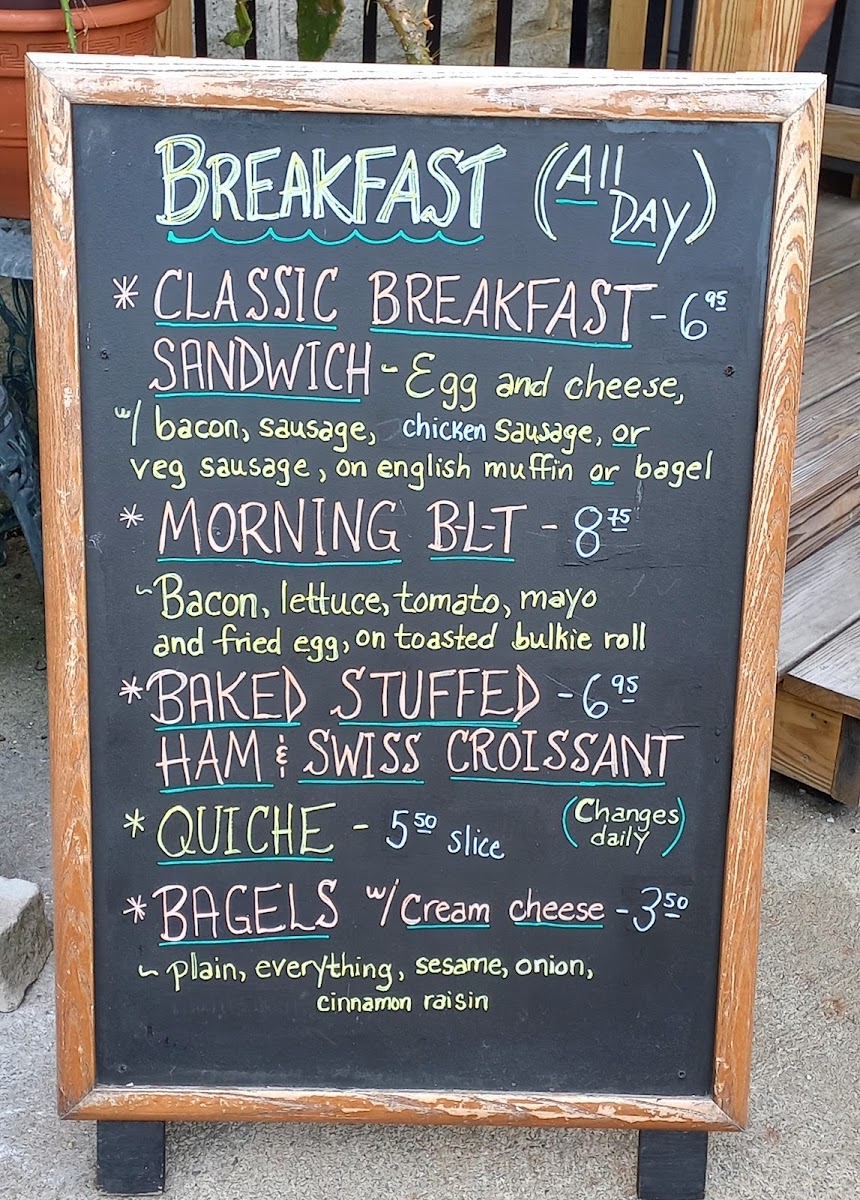 BREAKFAST (All DAY)
* CLASSIC BREAKFAST - 6 95
SANDWICH ~ Egg and cheese,
w/ bacon, sausage, chicken sausage, or
veg sausage, on english muffin or bagel
* MORNING B-L-T - 8 75
~ Bacon, lettuce, tomato, mayo
and fried egg, on toasted bulkie roll
* BAKED STUFFED - 6 95
HAM & SWISS CROISSANT
* QUICHE - 5 50 slice (Changes daily)
* BAGELS w/ cream cheese - 3 50
~ plain, everything, sesame, onion,
cinnamon raisin